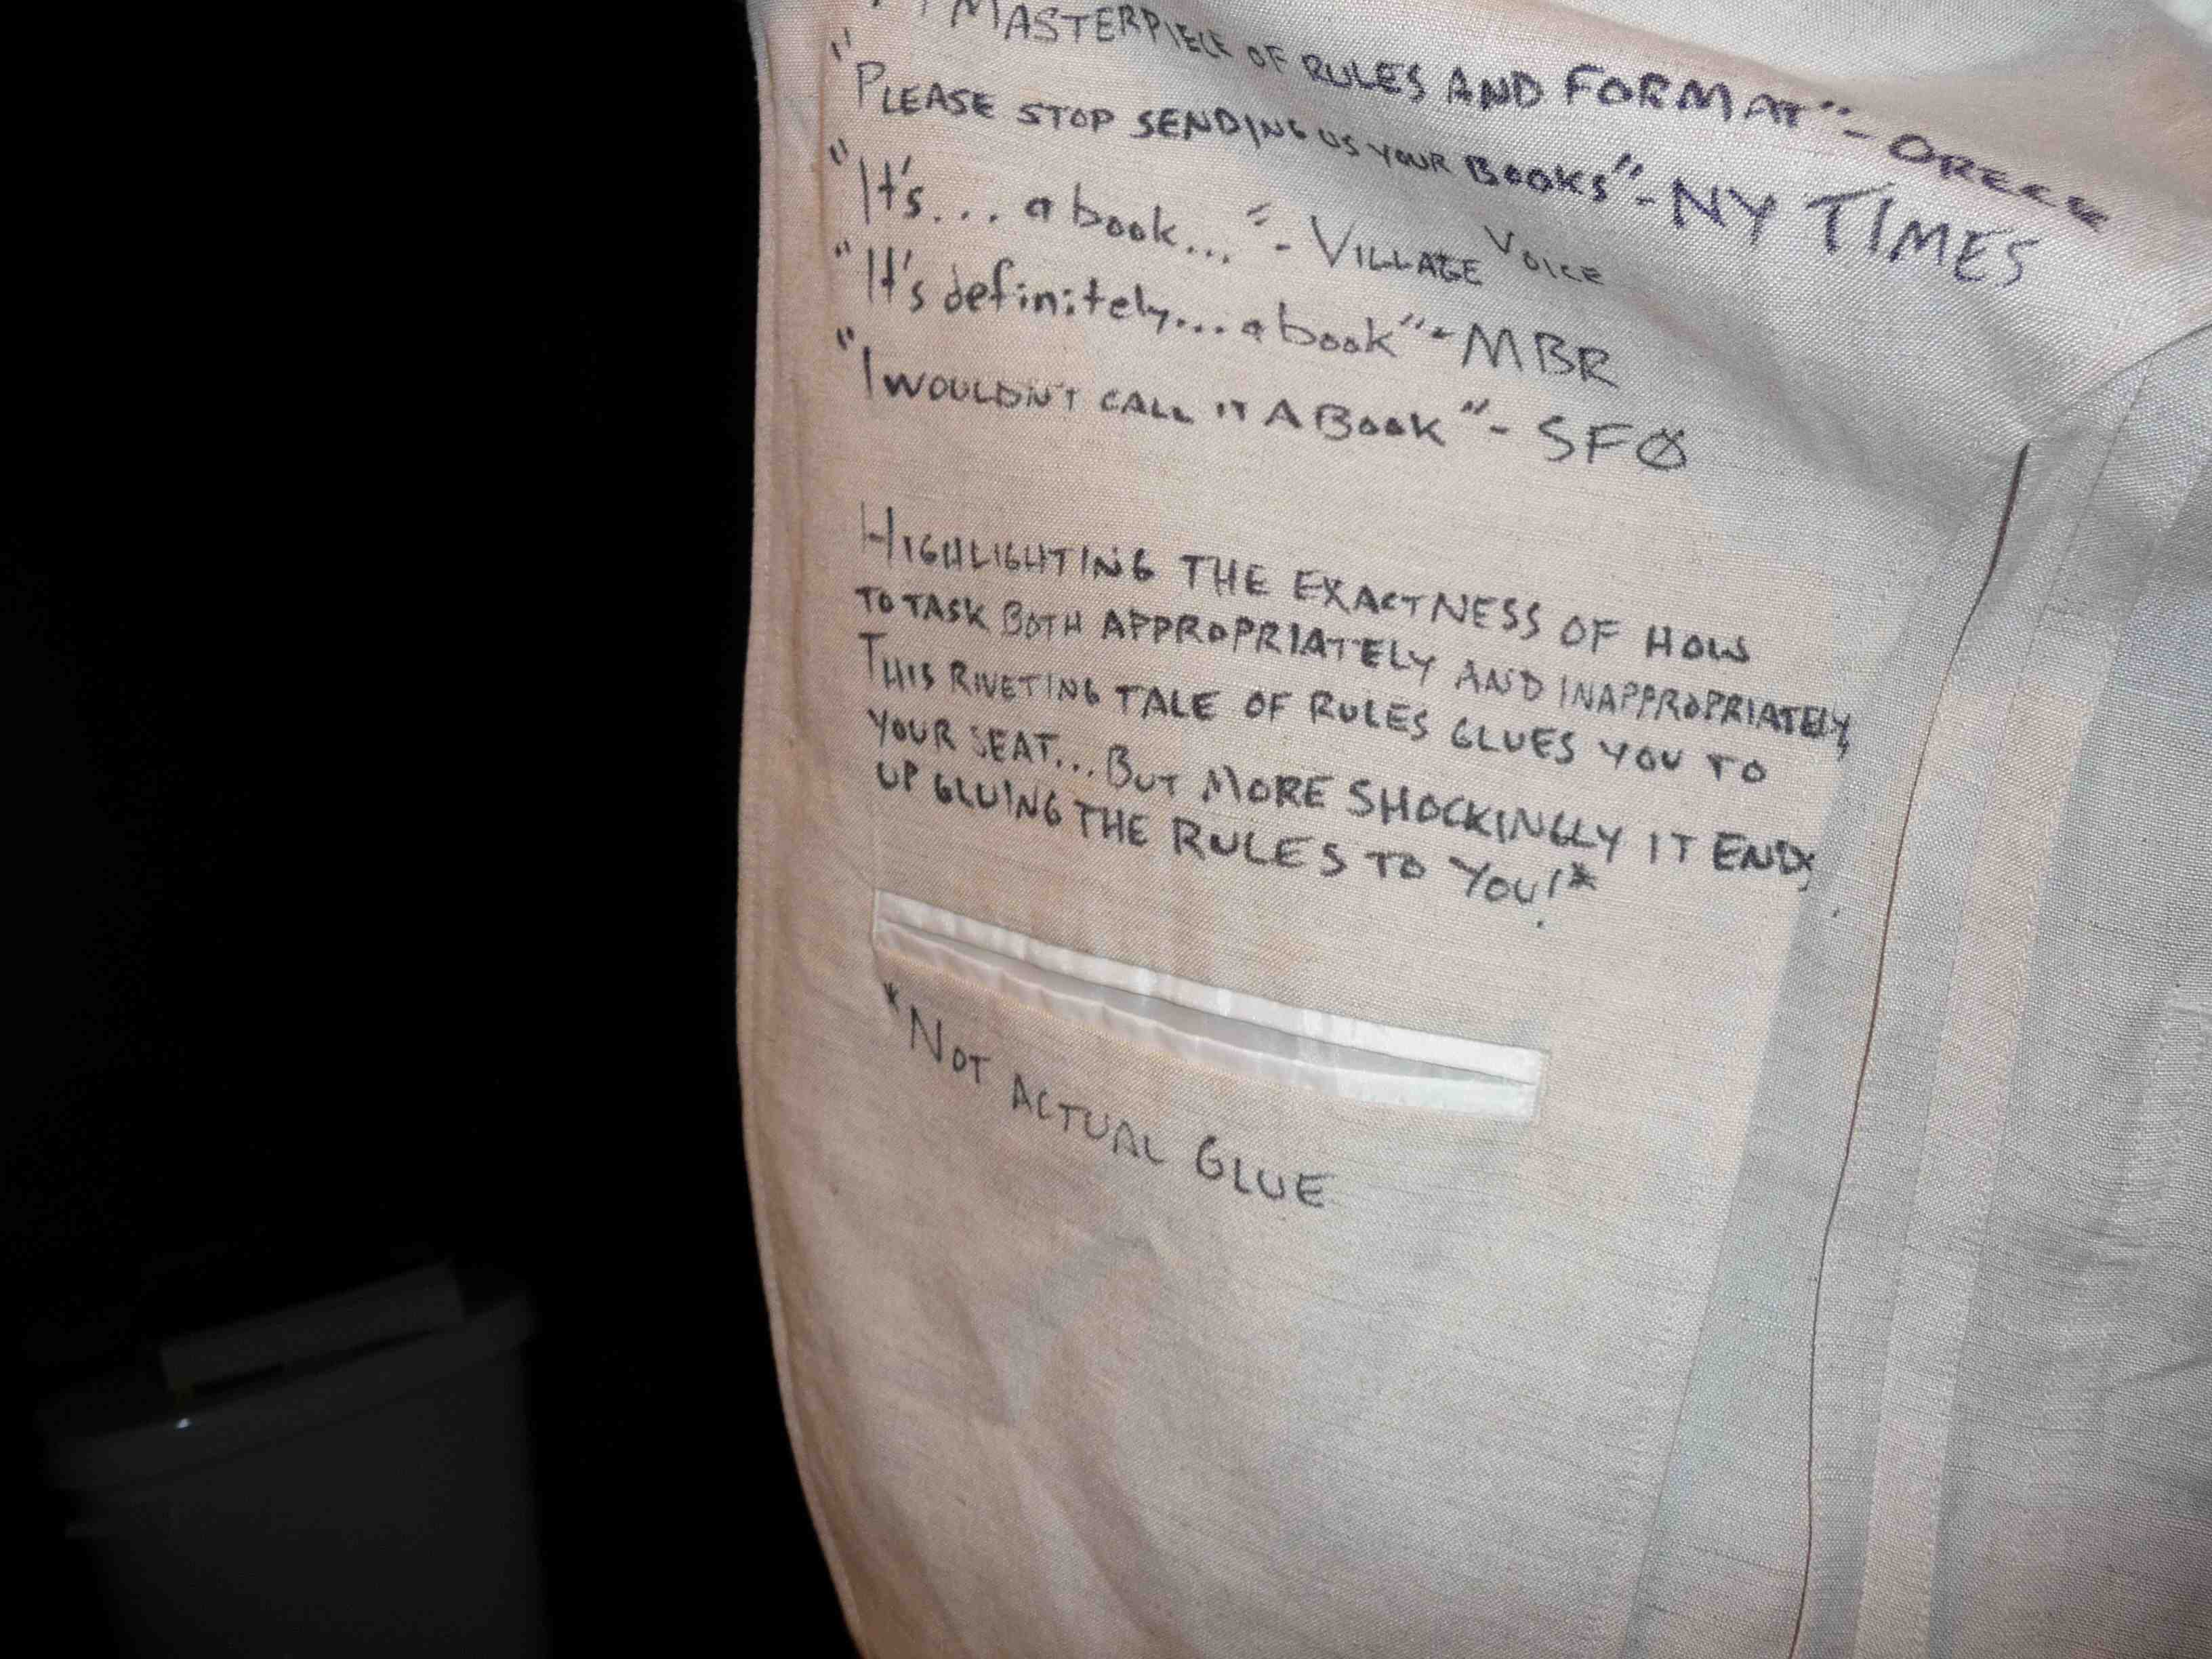 MASTERPIECE OF RULES AND FORMAT" -
"PLEASE STOP SENDING US YOUR BOOKS" - NY TIMES
"It's... a book..." - VILLAGE VOICE
"It's definitely... a book" - MBR
"I WOULDN'T CALL IT A BOOK" - SFØ
HIGHLIGHTING THE EXACTNESS OF HOW
TO TASK BOTH APPROPRIATELY AND INAPPROPRIATELY,
THIS RIVETING TALE OF RULES GLUES YOU TO
YOUR SEAT... BUT MORE SHOCKINGLY IT ENDS
UP GLUING THE RULES TO YOU!*
*NOT ACTUAL GLUE